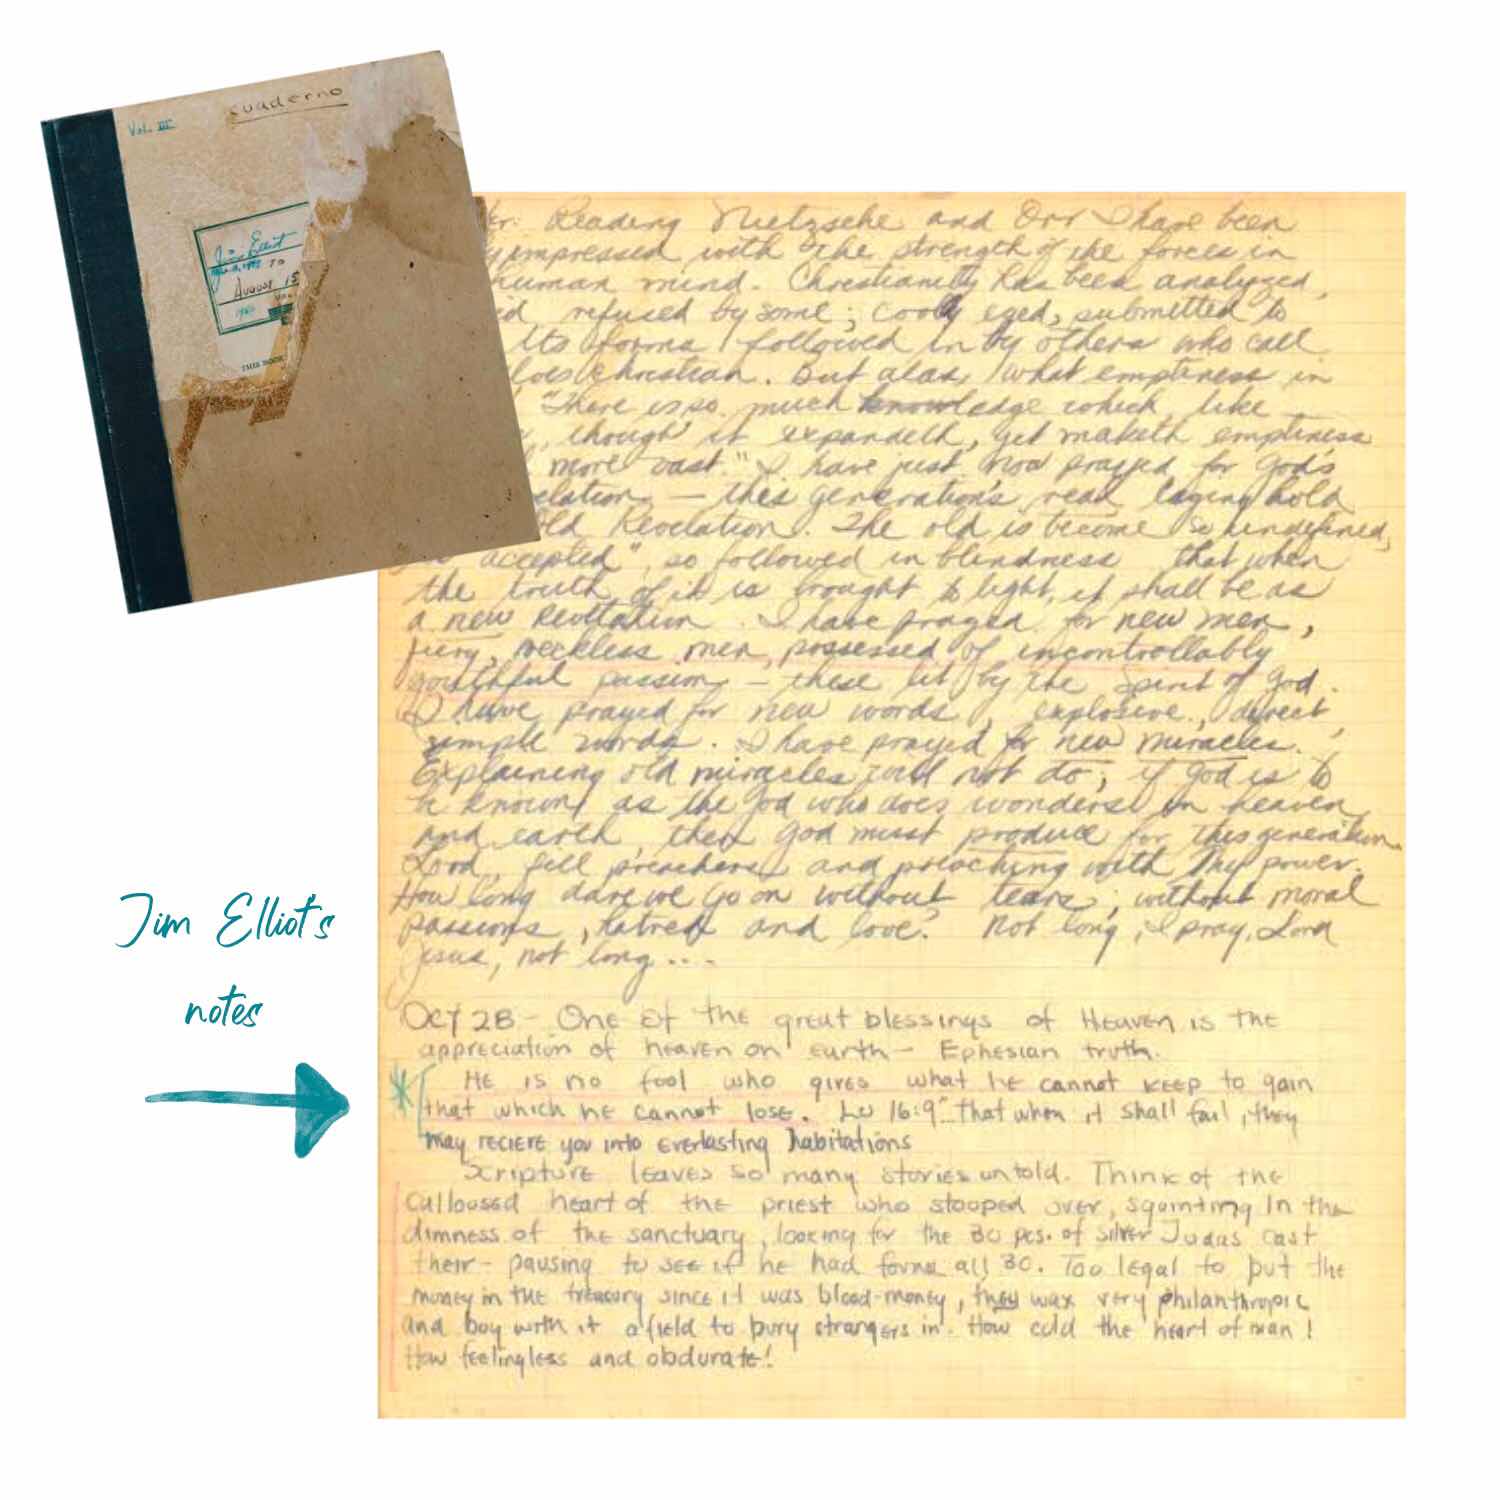 cuaderno
Vol. III
Jim Elliot
TO
August 15
THIS BOOK
Reading Nietzsche and Orr I have been
impressed with the strength of the forces in
human mind. Christianity has been analyzed,
refused by some; cooly eyed, submitted to
Its forms followed in by others who call
Christian. But alas, what emptiness in
"There is so much knowledge which, like
though it expandeth, yet maketh emptiness
more vast." I have just now prayed for God's
elation — this generation's read laying hold
old Revelation. The old is become so undefined,
accepted", so followed in blindness that when
the truth of it is brought to light, it shall be as
a new Revelation. I have prayed for new men,
fiery, reckless men, possessed of incontrollably
youthful passion — these lit by the Spirit of God.
I have prayed for new words, explosive, direct,
simple words. I have prayed for new miracles.
Explaining old miracles will not do; if God is to
be known as the God who does wonders in heaven
and earth, then God must produce for this generation.
Lord, fill preachers and preaching with Thy power.
How long dare we go on without tears; without moral
passions, hatred and love? Not long, I pray, Lord
Jesus, not long....
Jim Elliot's
notes
Oct 28 - One of the great blessings of Heaven is the
appreciation of heaven on earth - Ephesian truth.
* He is no fool who gives what he cannot keep to gain
that which he cannot lose. Lu 16:9 "That when it shall fail, they
may recieve you into everlasting habitations
Scripture leaves so many stories untold. Think of the
calloused heart of the priest who stooped over, squinting in the
dimness of the sanctuary, looking for the 30 pcs. of silver Judas cast
their - pausing to see if he had found all 30. Too legal to put the
money in the treasury since it was blood-money, they wax very philanthropic
and buy with it a field to bury strangers in. How cold the heart of man!
How feelingless and obdurate!